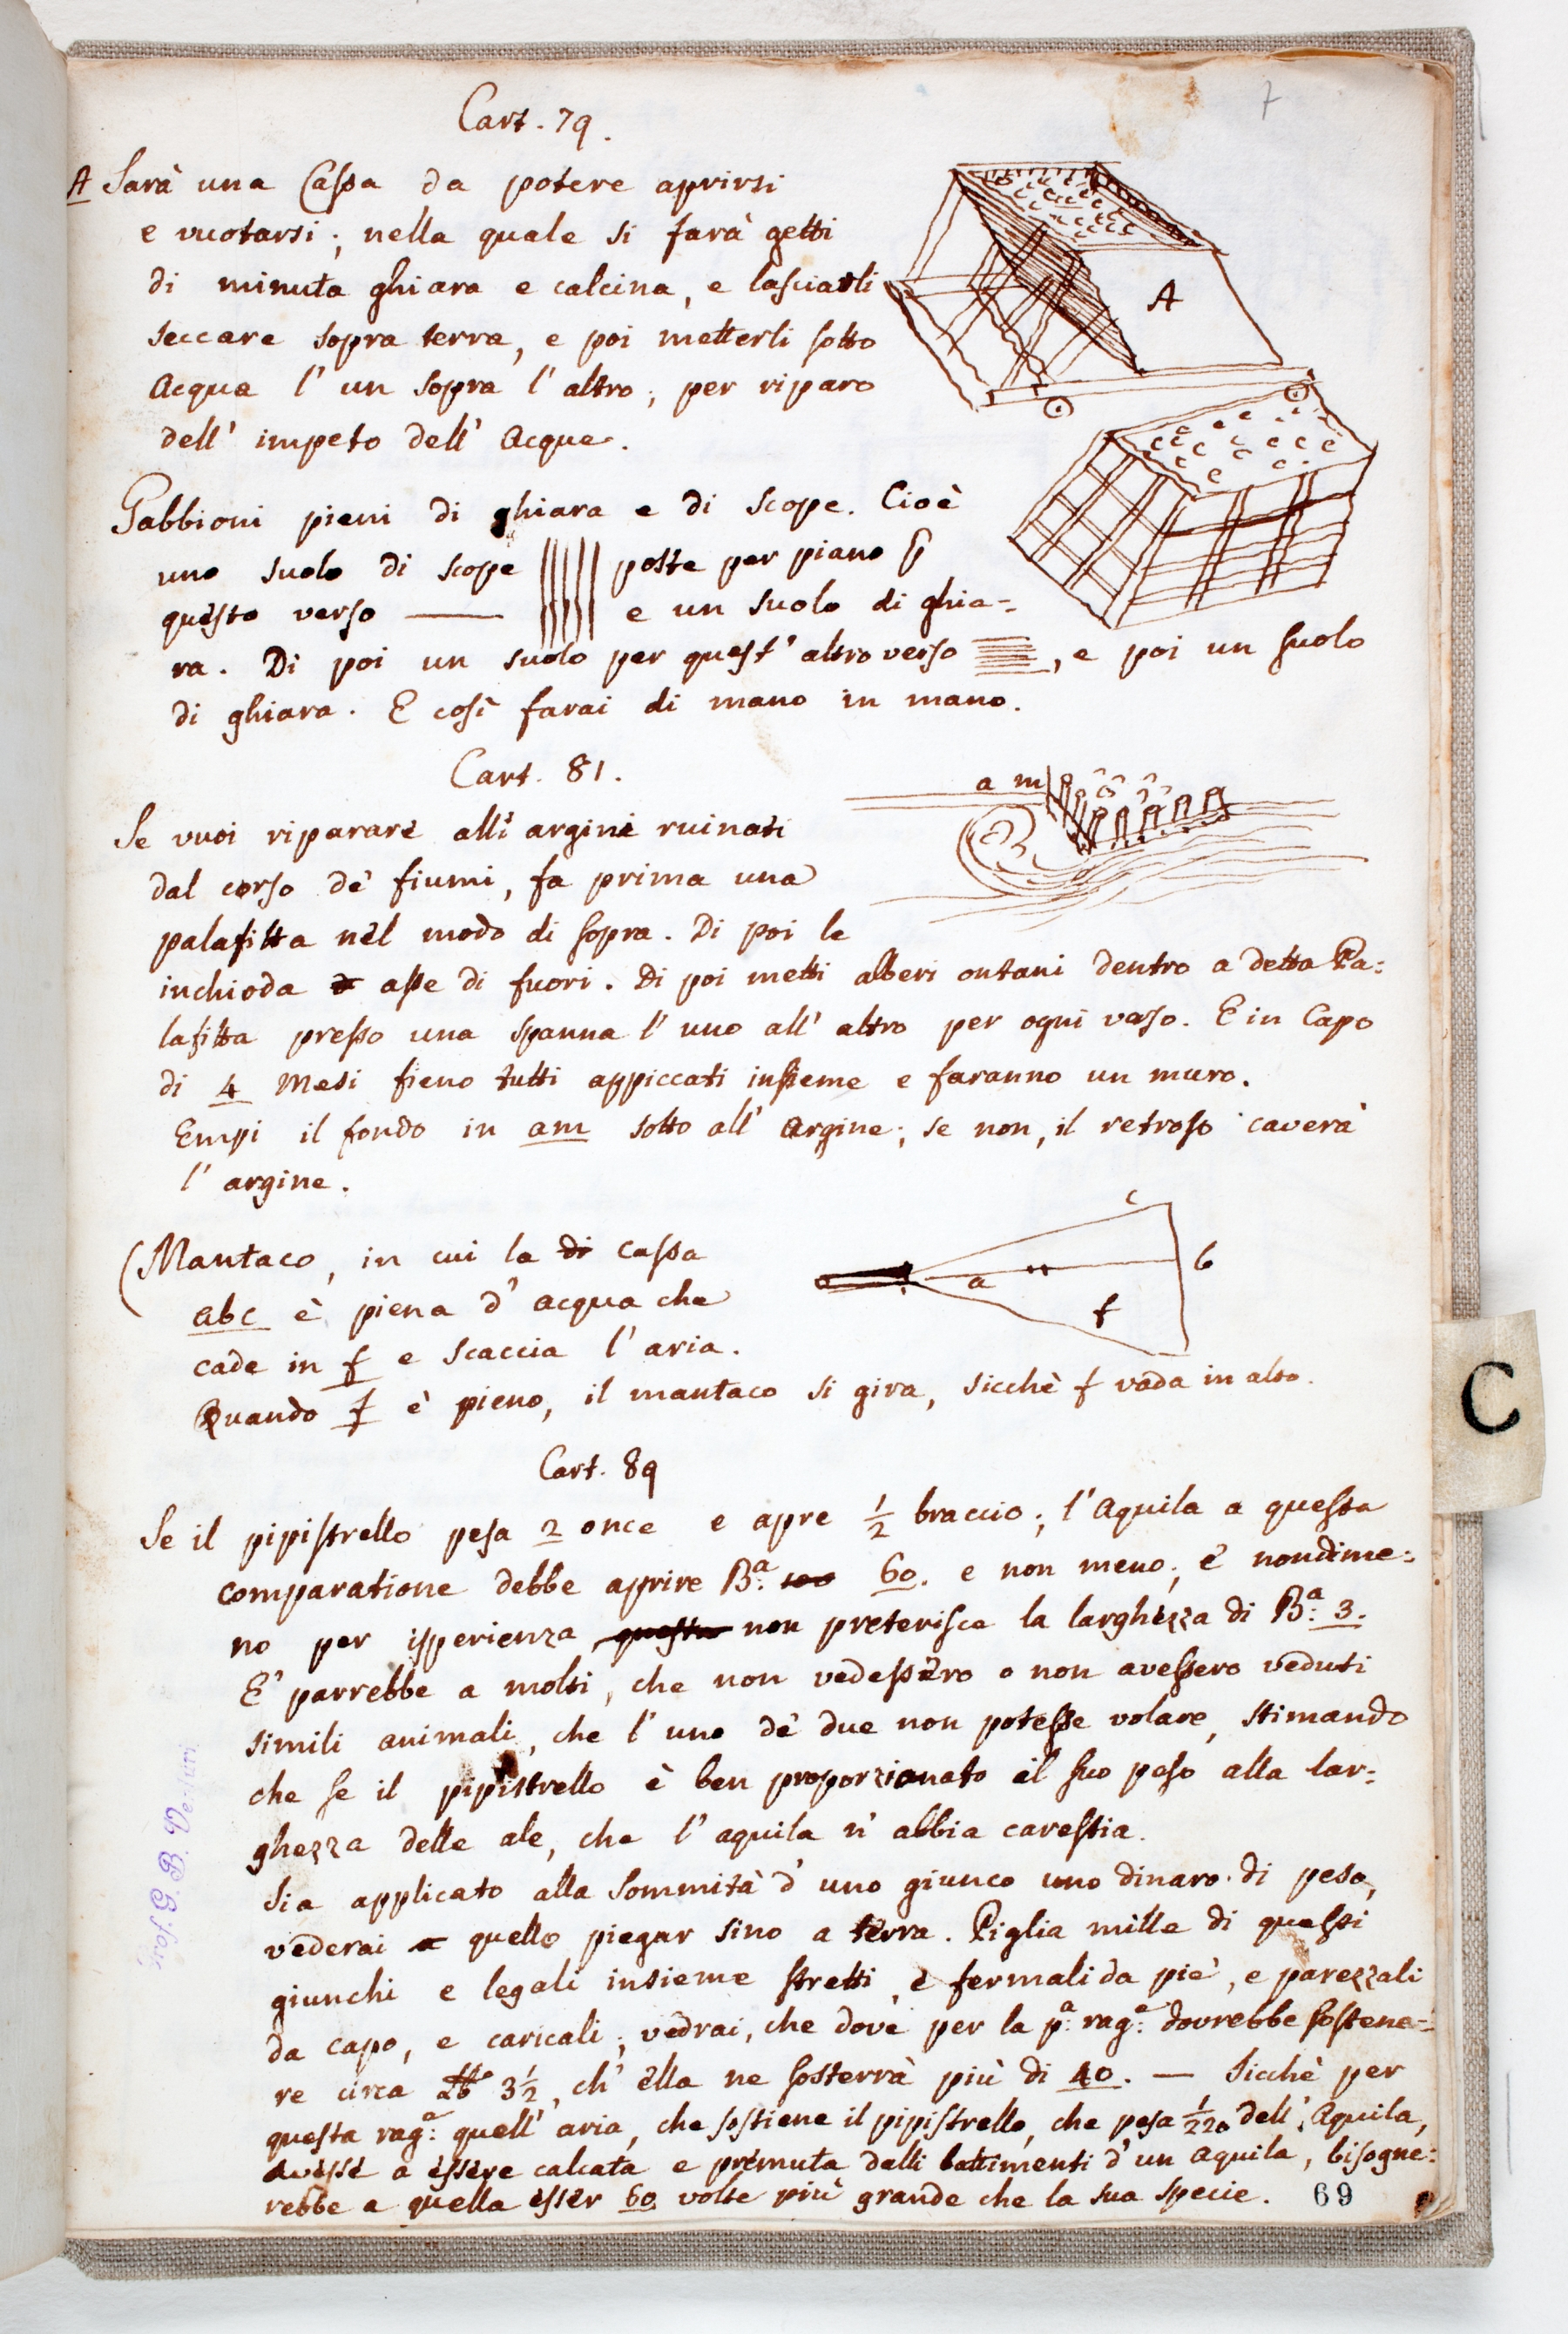 7
Cart. 79.
A Sarà una Cassa da potere aprirsi
e vuotarsi; nella quale si farà getti
di minuta ghiara e calcina, e lasciarli
seccare sopra terra, e poi metterli sotto
Acqua l'un sopra l'altro; per riparo
dell'impeto dell'Acque.
A
Gabbioni pieni di ghiara e di scope. Cioè
uno suolo di scope poste per piano p
questo verso — e un suolo di ghia-
ra. Di poi un suolo per quest'altro verso, e poi un suolo
di ghiara. E così farai di mano in mano.
Cart. 81.
a m
Se vuoi riparare alli argini ruinati
dal corso de' fiumi, fa prima una
palafitta nel modo di sopra. Di poi le
inchioda asse di fuori. Di poi metti alberi ontani dentro a detta Pa=
lafitta presso una spanna l'uno all'altro per ogni verso. E in Capo
di 4 Mesi fieno tutti appiccati insieme e faranno un muro.
Empi il fondo in am sotto all'Argine; se non, il retroso caverà
l'argine.
c
b
a
f
(Mantaco, in cui la di cassa
abc è piena d'acqua che
cade in f e scaccia l'aria.
Quando f è pieno, il mantaco si gira, sicchè f vada in alto.
Cart. 89
Se il pipistrello pesa 2 once e apre 1/2 braccio; l'Aquila a questa
comparatione debbe aprire B.a 60. e non meno; e nondime=
no per isperienza questa non preterisce la larghezza di B.a 3.
E' parrebbe a molti, che non vedessero o non avessero veduti
simili animali, che l'uno de' due non potesse volare, stimando
che se il pipistrello è ben proporzionato il suo peso alla lar=
ghezza delle ale, che l'aquila n'abbia carestia.
Sia applicato alla sommità d'uno giunco uno dinaro di peso,
vederai quello piegar sino a terra. Piglia mille di questi
giunchi e legali insieme stretti, e fermali da piè, e parezzali
da capo, e caricali; vedrai, che dove per la p.a rag.e dovrebbe sostene=
re circa lb 3 1/2, ch'ella ne sosterrà più di 40. — Sicchè per
questa rag.e quell'aria, che sostiene il pipistrello, che pesa 1/220 dell'Aquila,
avesse a essere calcata e premuta dalli battimenti d'un Aquila, bisogne=
rebbe a quella esser 60 volte più grande che la sua specie.
69
Prof. G. B. Venturi
C